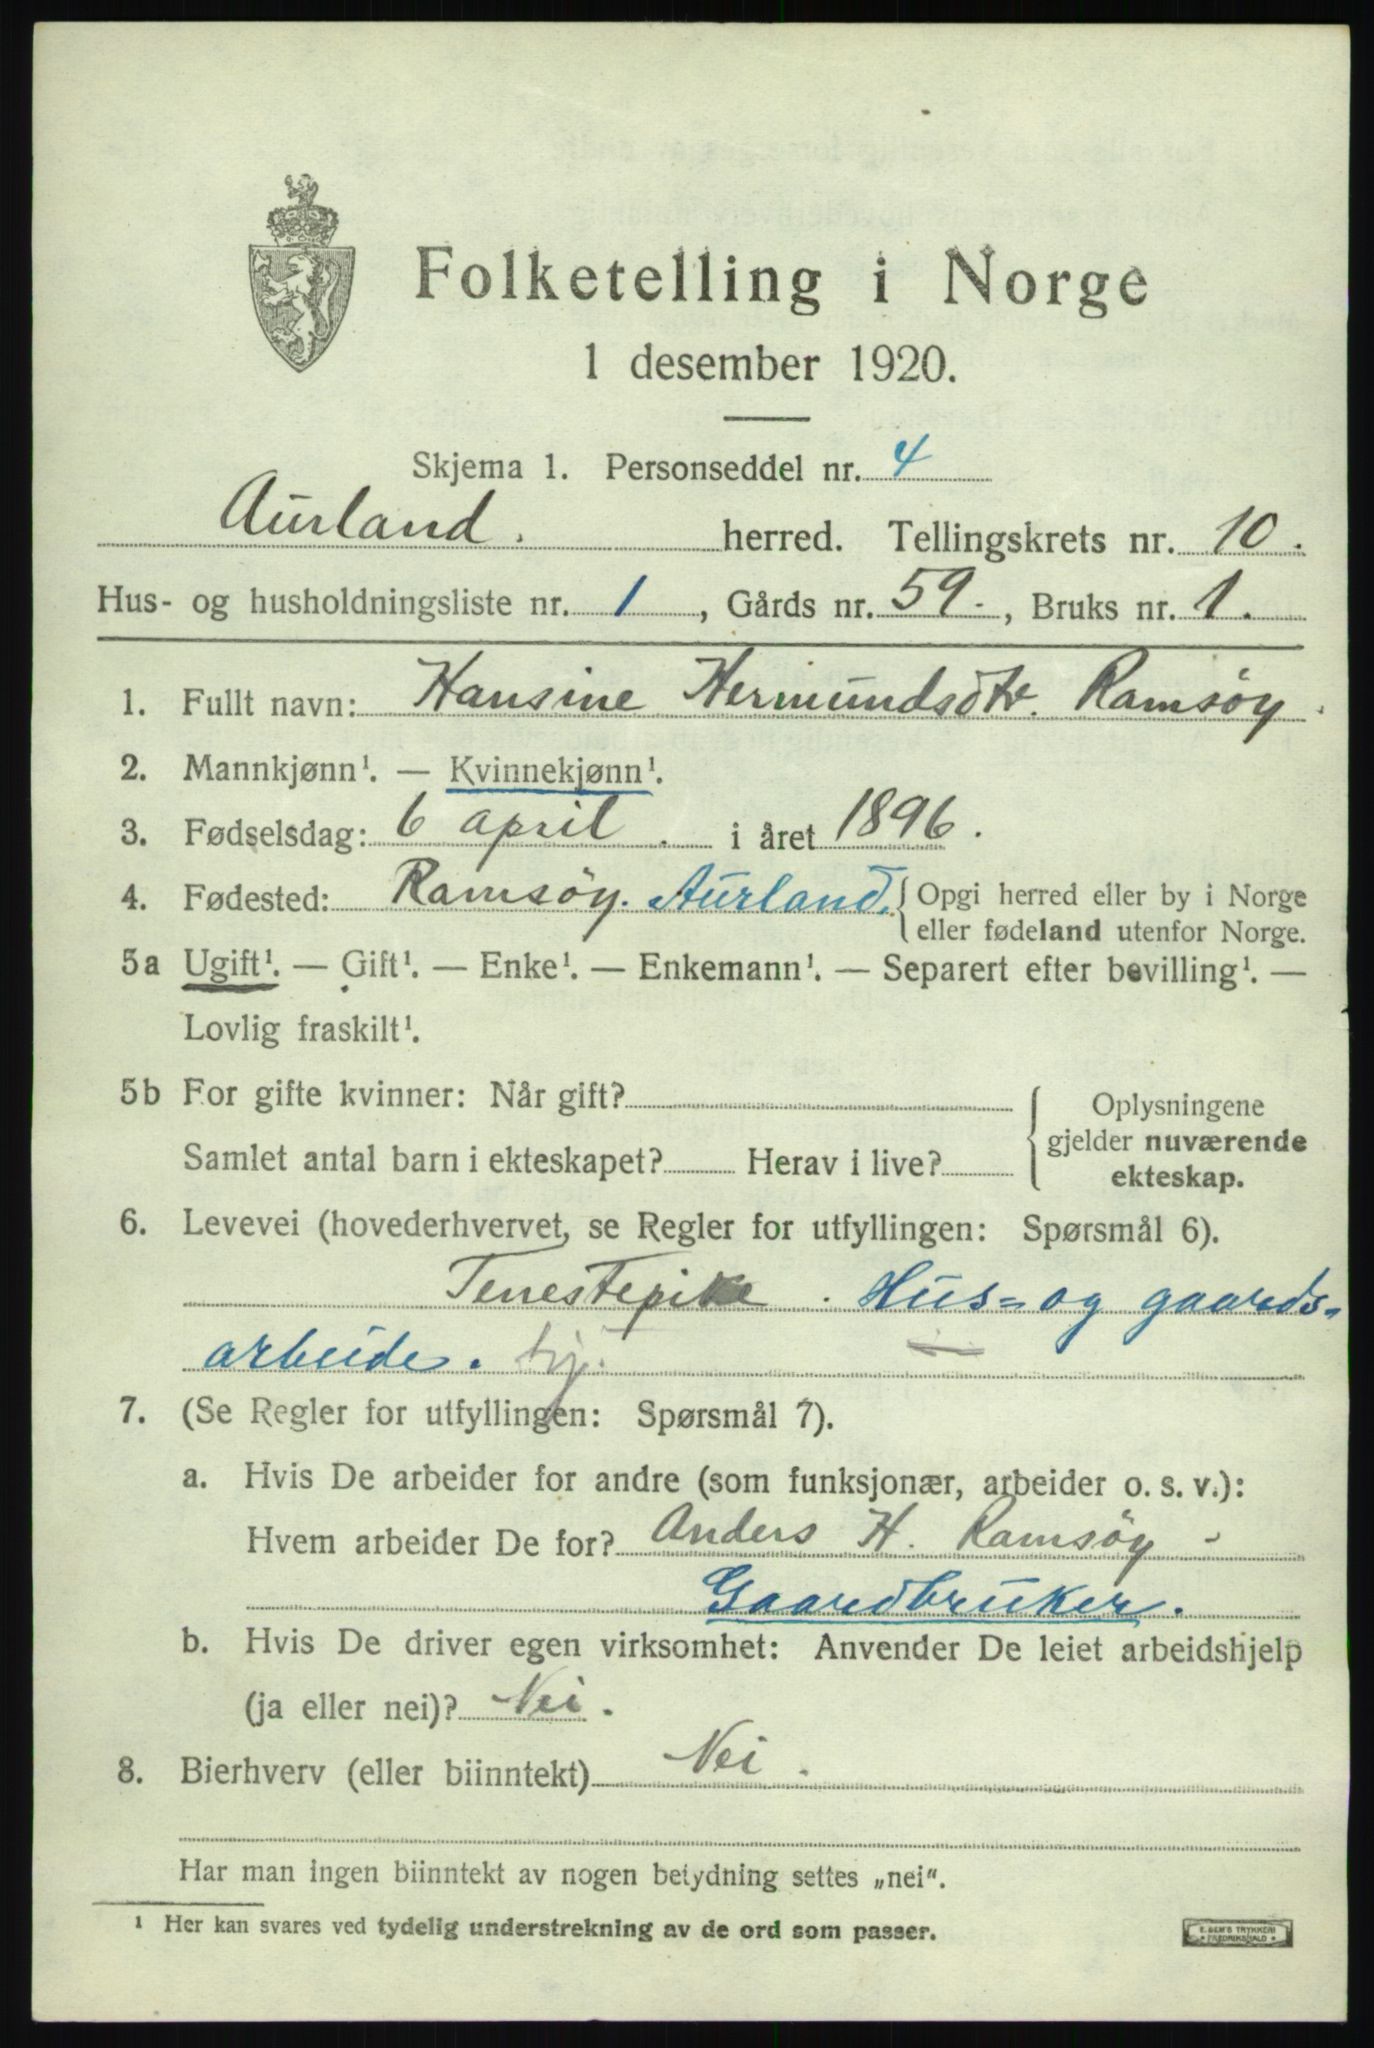 Folketelling i Norge
1 desember 1920.
Skjema 1. Personseddel nr. 4
Aurland. herred. Tellingskrets nr. 10.
Hus- og husholdningsliste nr. 1, Gårds nr. 59., Bruks nr. 1.
1. Fullt navn: Hansine Hermundsdtr. Ramsøy.
2. Mannkjønn¹. — Kvinnekjønn¹.
3. Fødselsdag: 6 april. i året 1896.
4. Fødested: Ramsøy. Aurland. { Opgi herred eller by i Norge
eller fødeland utenfor Norge.
5a Ugift¹. — Gift¹. — Enke¹. — Enkemann¹. — Separert efter bevilling¹. —
Lovlig fraskilt¹.
5b For gifte kvinner: Når gift?
Samlet antal barn i ekteskapet? Herav i live?
Oplysningene
gjelder nuværende
ekteskap.
6. Levevei (hovederhvervet, se Regler for utfyllingen: Spørsmål 6).
Tenestepike. Hus- og gaards-
arbeide. tj.
7. (Se Regler for utfyllingen: Spørsmål 7).
a. Hvis De arbeider for andre (som funksjonær, arbeider o. s. v.):
Hvem arbeider De for? Anders H. Ramsøy -
Gaardbruker.
b. Hvis De driver egen virksomhet: Anvender De leiet arbeidshjelp
(ja eller nei)? Nei.
8. Bierhverv (eller biinntekt) Nei.
Har man ingen biinntekt av nogen betydning settes „nei".
¹ Her kan svares ved tydelig understrekning av de ord som passer.
E. SEM'S TRYKKERI
FREDRIKSHALD